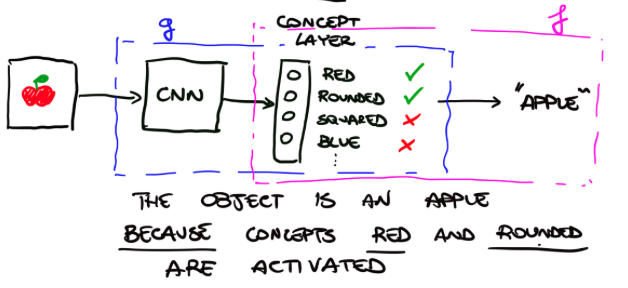 g
f
CONCEPT
LAYER
CNN
RED ✓
ROUNDED ✓
SQUARED ✗
BLUE ✗
⋮
"APPLE"
THE OBJECT IS AN APPLE
BECAUSE CONCEPTS RED AND ROUNDED
ARE ACTIVATED